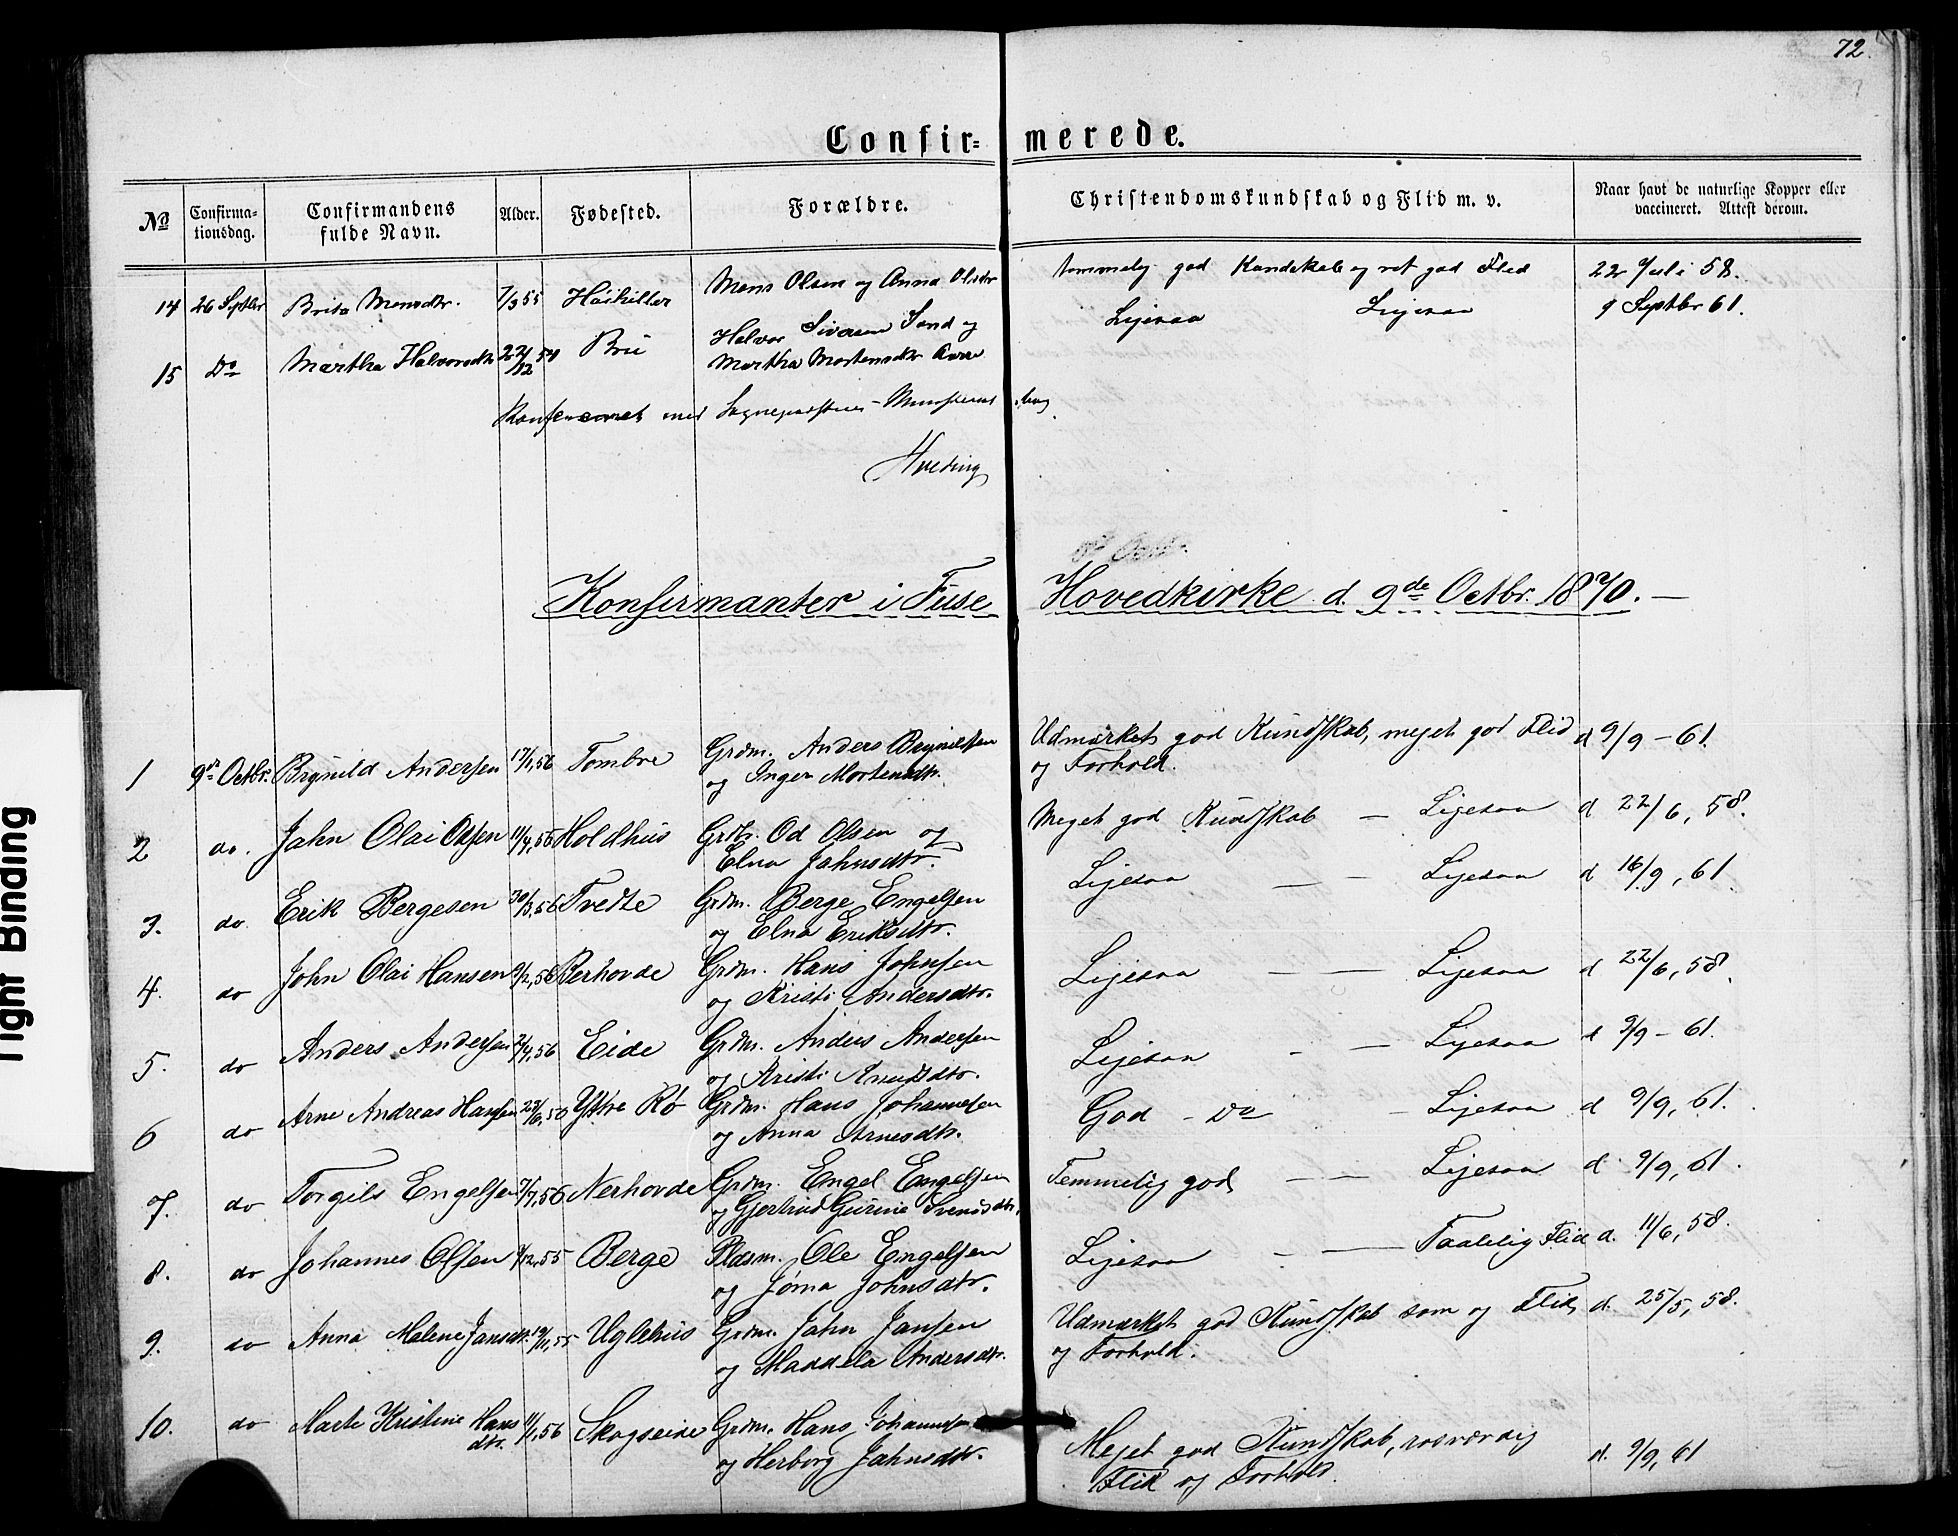 72.
Confir- merede.
No Confirmationsdag. Confirmandens fulde Navn. Alder. Fødested. Forældre. Christendomskundskab og Flid m. v. Naar havt de naturlige Kopper eller vaccineret. Attest derom.
14 26 Septbr Brita Monsdtr. 7/3 55 Mons Olsen og Anna Olsdtr temmelig god Kundskab og ret god Flid 22 Juli 58.
15 Do Martha Halvorsdtr 22/12 54 Bru Halvor Siversen Sand og Ligesaa Ligesaa 9 Septbr 61.
Martha Mortensdtr
med
Hveding
Konfirmanter i Fuse Hovedkirke d. 9de Octbr. 1870. —
1 9de Octbr. Brynild Andersen 17/1, 56 Tombre Grdm. Anders Brynildsen Udmærket god Kundskab, meget god Flid d 9/9 - 61.
og Inger Mortensdtr. og Forhold.
2 do. Jahn Olai Odsen 11/4, 56 Holdhus Grdb. Od Olsen og Meget god Kundskab — Ligesaa d 22/6, 58.
Elna Jahnsdtr.
3. do Erik Bergesen 30/3, 56 Tvedte Grdm. Berge Engelsen Ligesaa — — Ligesaa d 16/9, 61.
og Elna Eriksdtr.
4. do John Olai Hansen 9/2, 56 Berhovde Grdm. Hans Johnsen Ligesaa — — Ligesaa d 22/6, 58.
og Kristi Andersdtr.
5. do Anders Andersen 2/4, 56 Eide Grdm. Anders Andersen Ligesaa - — Ligesaa d 9/9 - 61.
og Kristi Knudsdtr.
6 do Arne Andreas Hansen Ytre Rø Grdm. Hans Johannesen God - Do - Ligesaa d 9/9, 61.
og Anna Arnesdtr.
7. do Torgils Engelsen 7/7, 56 Nerhovde Grdm. Engel Engelsen Temmelig god — — Ligesaa d. 9/9, 61.
og Gjertrud Gurine Svendsdtr.
8. do Johannes Olsen 7/12, 55 Berge Pladsm. Ole Engelsen Ligesaa - — Taalelig Flid d. 11/6, 58.
og Jóma Johnsdtr.
9. do Anna Malene Jansdtr. 19/11, 55 Uglehus Grdm. Jahn Jansen Udmærket god Kundskab som og Flid d. 25/5, 58.
og Maddela Andersdtr. og Forhold.
10. do Marte Kristine Hansdtr. 11/1, 56 Skogseide Grdm. Hans Johannesen Meget god Kundskab, rosværdig d. 9/9, 61
og Herborg Jahnsdtr. Flid og Forhold.
Tight Binding